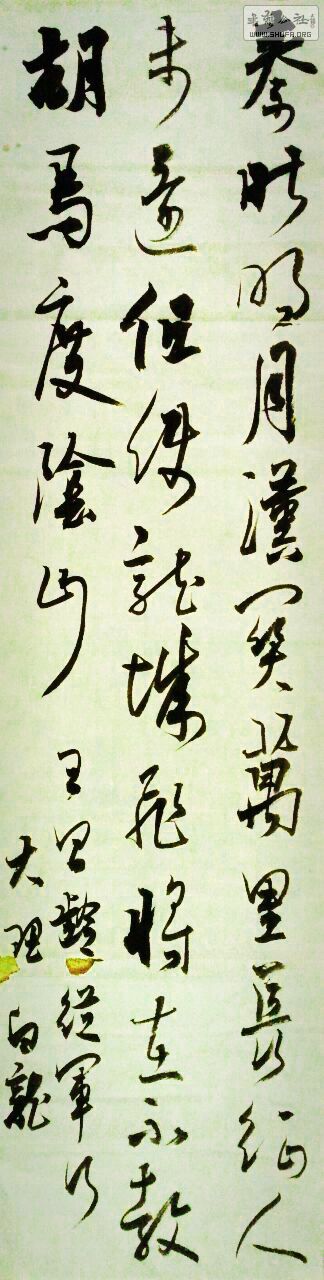 書法公社
WWW.SHUFA.ORG
秦時明月漢關萬里長征人
未還但使龍城飛將在不教
胡馬度陰山
王昌齡從軍行
大理白龍